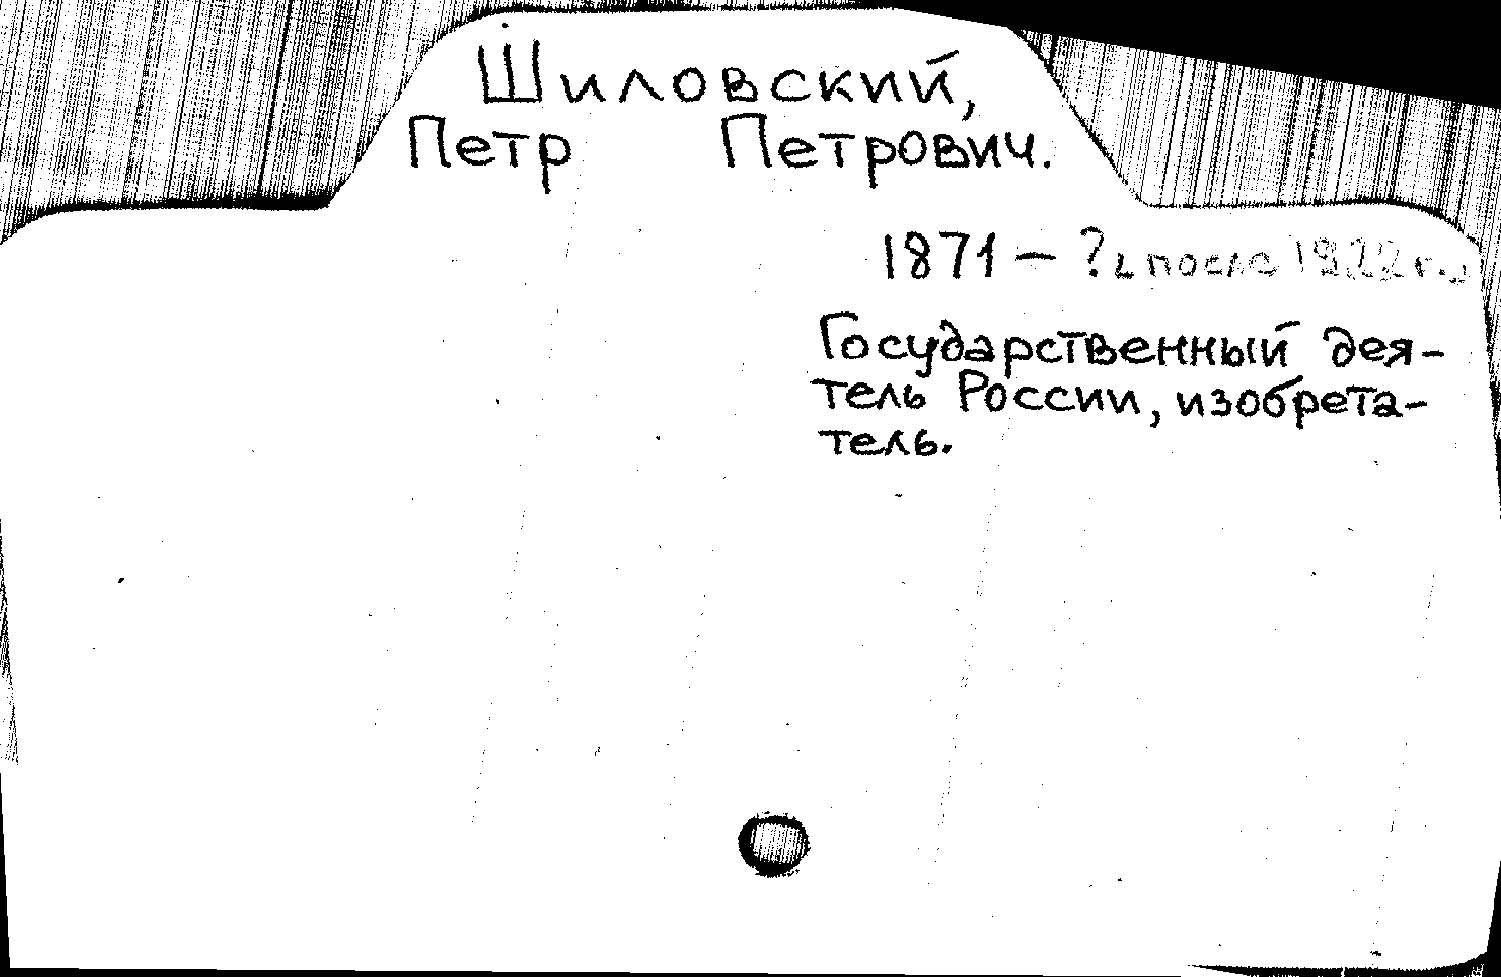 Шиловский,
Петр Петрович.
1871 – ? [после 1922 г.]
Государственный дея-
тель России, изобрета-
тель.